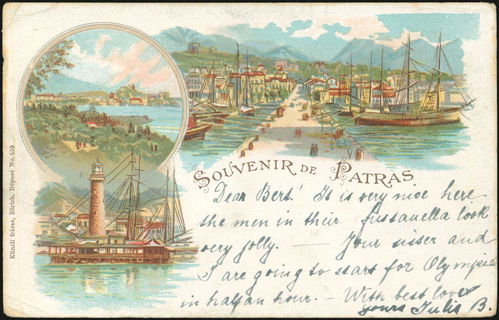 SOUVENIR DE PATRAS
Dear Bert! It is very nice here
the men in their fustanella look
very jolly. — Your sister and
I am going to start for Olympia
in half an hour. — With best love
yours Julia B.
Künzli frères, Zürich, Déposé No. 559